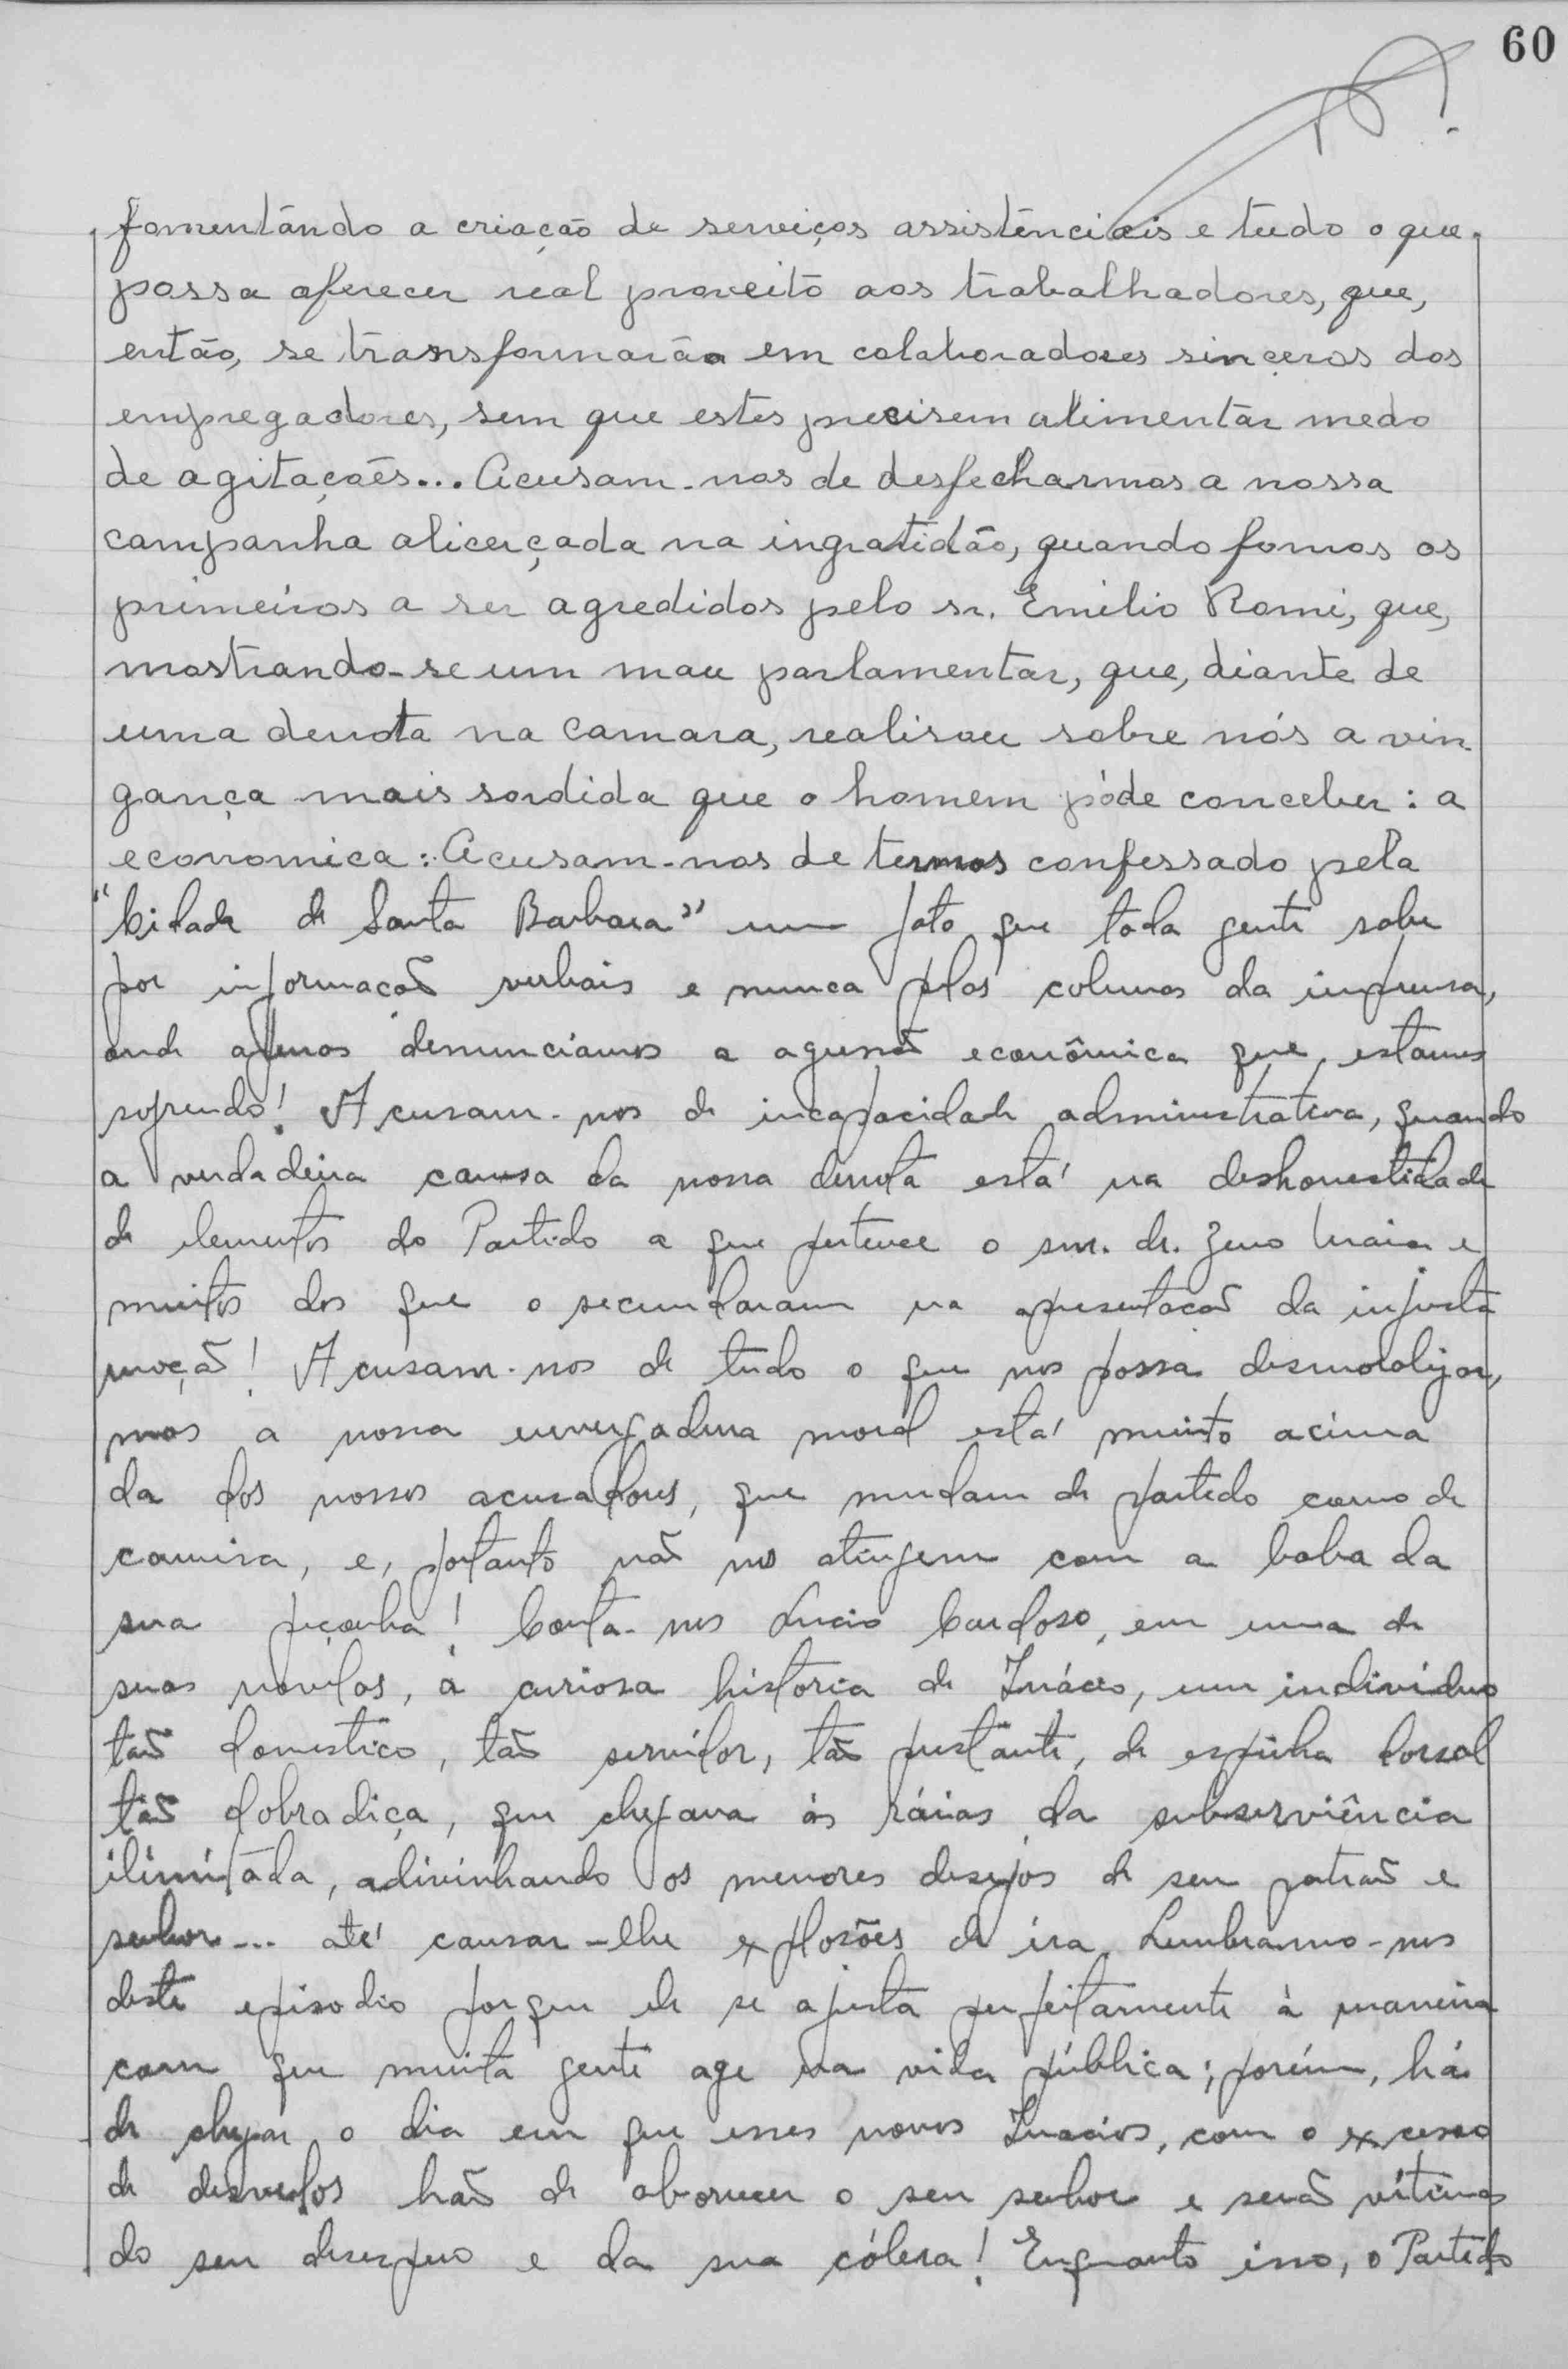 60
fomentando a criação de serviços assistênciais e tudo o que
possa oferecer real proveito aos trabalhadores, que,
então, se transformarão em colaboradores sinceros dos
empregadores, sem que estes precisem alimentar medo
de agitações... Acusam-nos de desfecharmos a nossa
campanha alicerçada na ingratidão, quando fomos os
primeiros a ser agredidos pelo sr. Emilio Romi, que,
mostrando-se um mau parlamentar, que, diante de
uma derrota na camara, realisou sobre nós a vin-
gança mais sordida que o homem póde conceber: a
economica: Acusam-nos de termos confessado pela
"Cidade de Santa Barbara" um fato que toda gente sabe
por informações verbais e nunca pelas colunas da imprensa,
onde apenas denunciamos a agressão econômica que estamos
sofrendo! Acusam-nos de incapacidade administrativa, quando
a verdadeira causa da nossa derrota está na deshonestidade
de elementos do Partido a que pertence o snr. dr. Zeno Maia e
muitos dos que o secundaram na apresentação da injusta
moção! Acusam-nos de tudo o que nos possa desmoralizar,
mas a nossa envergadura moral está muito acima
da dos nossos acusadores, que mudam de partido como de
camisa, e, portanto não nos atingem com a baba da
sua peçonha! Conta-nos Lucio Cardoso, em uma de
suas novelas, a curiosa história de Inácio, um indivíduo
tão domestico, tão servidor, tão prestante, de espinha dorsal
tão dobradiça, que chegava ás ráias da subserviência
ilimitada, adivinhando os menores desejos de seu patrão e
senhor... até causar-lhe explosões de ira. Lembramo-nos
deste episodio porque ele se ajusta perfeitamente à maneira
com que muita gente age na vida pública; porém, há
de chegar o dia em que esses novos Inacios, com o excesso
de desvelos hão de aborrecer o seu senhor e serão vítimas
do seu desespero e da sua cólera! Enquanto isso, o Partido